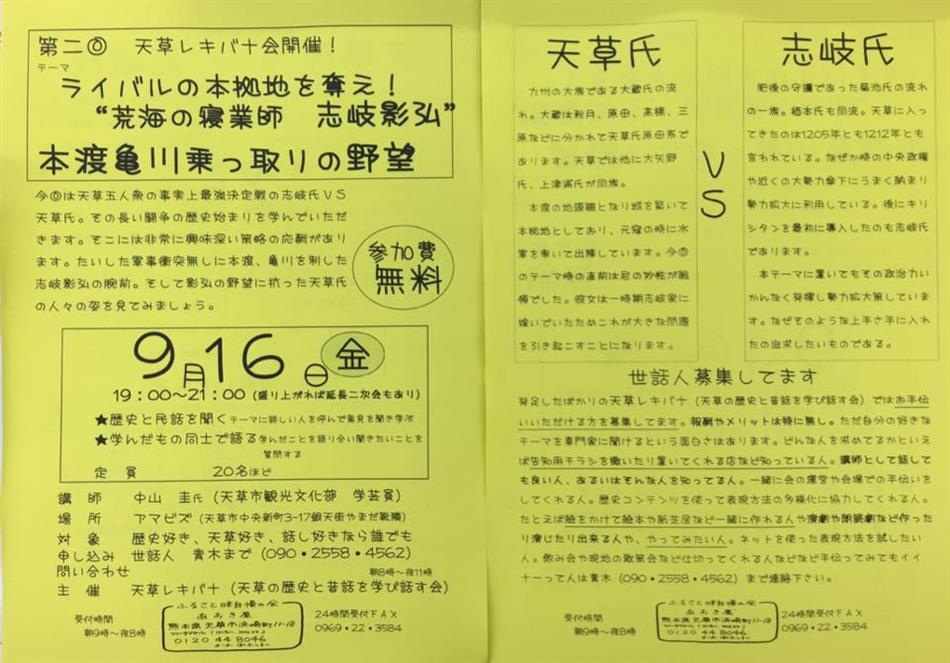 第二回 天草レキバナ会開催！
テーマ
ライバルの本拠地を奪え！
“荒海の寝業師 志岐影弘”
本渡亀川乗っ取りの野望
今回は天草五人衆の事実上最強決定戦の志岐氏VS
天草氏。その長い闘争の歴史始まりを学んでいただ
きます。そこには非常に興味深い策略の応酬があり
ます。たいした軍事衝突無しに本渡、亀川を制した
志岐影弘の腕前。そして影弘の野望に抗った天草氏
の人々の姿を見てみましょう。
参加費
無料
9月16日 金
19：00～21：00（盛り上がれば延長二次会もあり）
★歴史と民話を聞くテーマに詳しい人を呼んで意見を聞き学ぶ
★学んだもの同士で語る学んだことを語り合い聞きたいことを
質問する
定員 20名ほど
講師 中山 圭氏（天草市観光文化部 学芸員）
場所 アマビズ（天草市中央新町3-17銀天街やまだ靴隣）
対象 歴史好き、天草好き、話し好きなら誰でも
申し込み 世話人 青木まで（090・2558・4562）
問い合わせ 朝8時～夜11時
主催 天草レキバナ（天草の歴史と昔話を学び話す会）
受付時間
朝9時～夜8時
ふるさと味自慢の会
あおき屋
熊本県天草市浜崎町11-18
0120 44 8046
24時間受付FAX
0969・22・3584
天草氏
九州の大族である大蔵氏の流
れ。大蔵は秋月、原田、高橋、三
原などに分かれて天草氏原田系で
あります。天草では他に大矢野
氏、上津浦氏が同族。
本渡の地頭職となり城を築いて
本拠地としており、元寇の時に水
軍を率いて出陣しています。今回
のテーマ時の直前は尼の妙性が当
領でした。彼女は一時期志岐家に
嫁いでいたためこれが大きな問題
を引き起こすことになります。
VS
志岐氏
肥後の守護であった菊池氏の流れ
の一族。栖本氏も同流。天草に入っ
てきたのは1205年とも1212年とも
言われている。なぜか時の中央政権
や近くの大勢力傘下にうまく納まり
勢力拡大に利用している。後にキリ
シタンを最初に導入したのも志岐氏
であります。
本テーマに置いてもその政治力い
かんなく発揮し勢力拡大策していま
す。なぜそのような上手さ手に入れ
たの追求したいものである。
世話人募集してます
発足したばかりの天草レキバナ（天草の歴史と昔話を学び話す会）ではお手伝
いいただける方を募集してます。報酬やメリットは特に無し。ただ自分の好きな
テーマを専門家に聞けるという面白さはあります。どんな人を求めてるかといえ
ば告知用チラシを撒いたり置いてくれる店など知っている人。講師として話して
も良い人、あるいはそんな人を知ってる人。一緒に会の運営や会場での手伝いを
してくれる人。歴史コンテンツを使って表現方法の多様化に協力してくれる人。
たとえば絵をかけて絵本や紙芝居など一緒に作れる人や演劇や朗読劇など作った
り演じたり出来る人や、やってみたい人。ネットを使った表現方法を試したい
人。飲み会や現地の散策会など仕切ってくれる人などなど手伝ってみてもイイ
ナーって人は青木（090・2558・4562）まで連絡下さい。
受付時間
朝9時～夜8時
ふるさと味自慢の会
あおき屋
熊本県天草市浜崎町11-18
0120 44 8046
24時間受付FAX
0969・22・3584